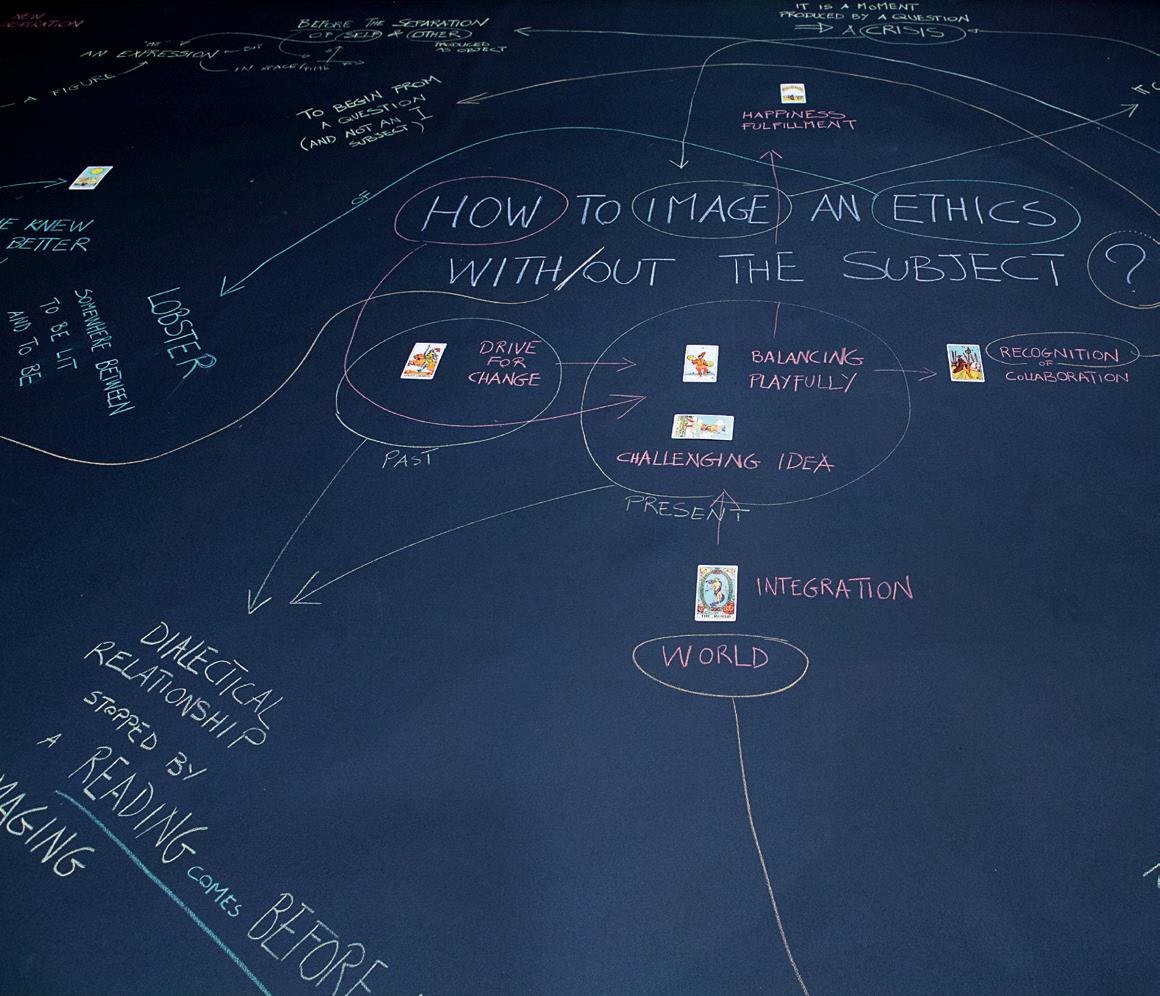 NEW
AN EXPRESSION
IN SPACE/TIME
A FIGURE
BEFORE THE SEPARATION
OF SELF & OTHER
PRODUCED
AS OBJECT
IT IS A MOMENT
PRODUCED BY A QUESTION
⇒ A CRISIS
TO BEGIN FROM
A QUESTION
(AND NOT AN I
SUBJECT)
HAPPINESS
FULFILLMENT
IF
OF
HOW TO IMAGE AN ETHICS
WITH/OUT THE SUBJECT ?
KNEW
BETTER
LOBSTER
SOMEWHERE BETWEEN
TO BE LIT
AND TO BE
DRIVE
FOR
CHANGE
PAST
BALANCING
PLAYFULLY
CHALLENGING IDEA
PRESENT
RECOGNITION
OF
COLLABORATION
INTEGRATION
THE WORLD
WORLD
DIALECTICAL
RELATIONSHIP
STOPPED BY
A READING COMES BEFORE
MAGING